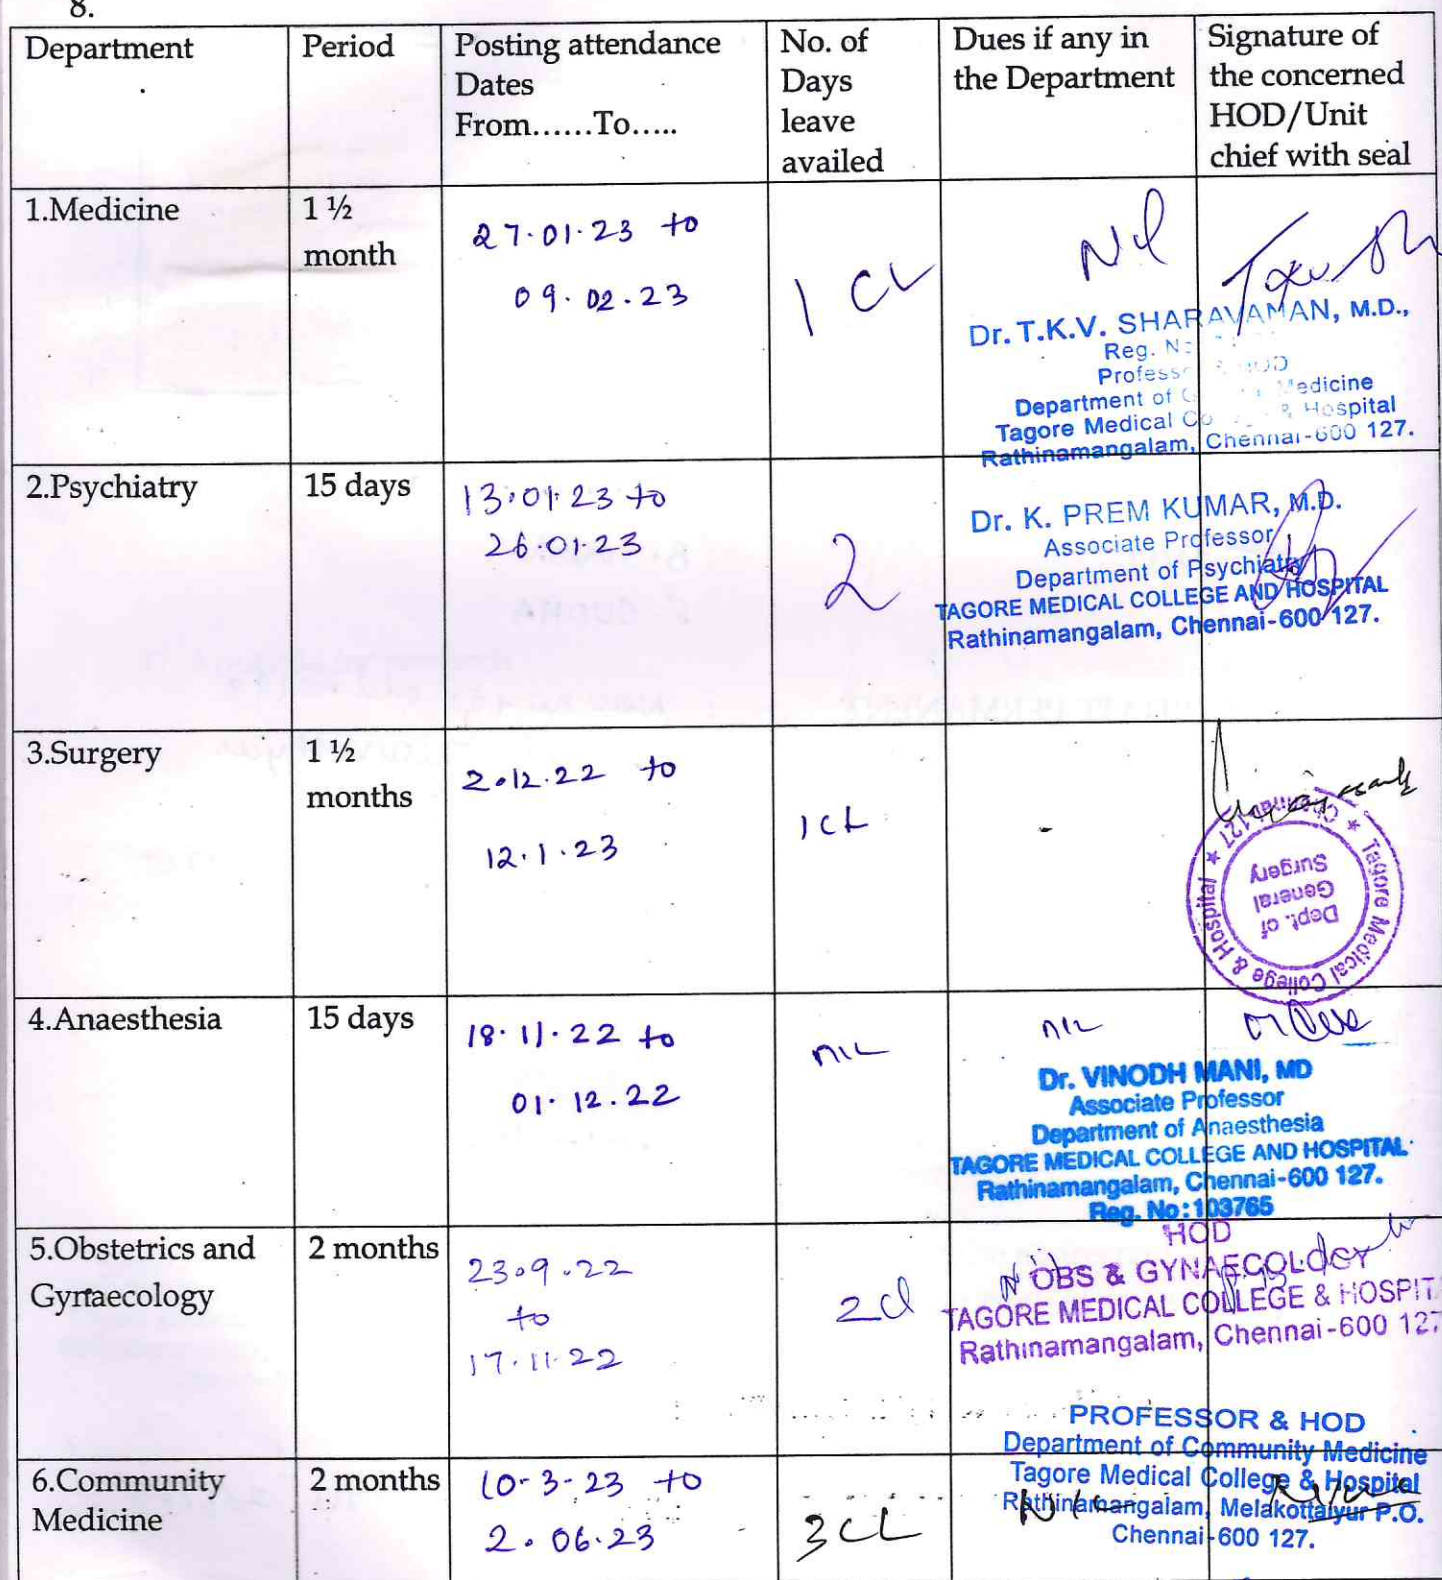 8.
Department
Period
Posting attendance
Dates
From......To.....
No. of
Days
leave
availed
Dues if any in
the Department
Signature of
the concerned
HOD/Unit
chief with seal
1.Medicine
1 ½
month
27.01.23 to
09.02.23
1 CL
Nil
Dr. T.K.V. SHARAVAMAN, M.D.,
Reg.
HOD
Department of Medicine
Tagore Medical & Hospital
Rathinamangalam, Chennai-600 127.
2.Psychiatry
15 days
13.01.23 to
26.01.23
2
Dr. K. PREM KUMAR, M.D.
Associate Professor
Department of Psychiatry
TAGORE MEDICAL COLLEGE AND HOSPITAL
Rathinamangalam, Chennai-600 127.
3.Surgery
1 ½
months
2.12.22 to
12.1.23
1 CL
-
Tagore Medical College & Hospital ★ Chennai-127 ★
Dept. of
General
Surgery
4.Anaesthesia
15 days
18.11.22 to
01.12.22
NIL
NIL
Dr. VINODH MANI, MD
Associate Professor
Department of Anaesthesia
TAGORE MEDICAL COLLEGE AND HOSPITAL
Rathinamangalam, Chennai-600 127.
Reg. No: 103765
5.Obstetrics and
Gynaecology
2 months
23.9.22
to
17.11.22
2 cl
HOD
OBS & GYNAECOLOGY
TAGORE MEDICAL COLLEGE & HOSPIT
Rathinamangalam, Chennai-600 127
6.Community
Medicine
2 months
10-3-23 to
2.06.23
3 CL
Nil
PROFESSOR & HOD
Department of Community Medicine
Tagore Medical College & Hospital
Rathinamangalam, Melakottaiyur P.O.
Chennai-600 127.